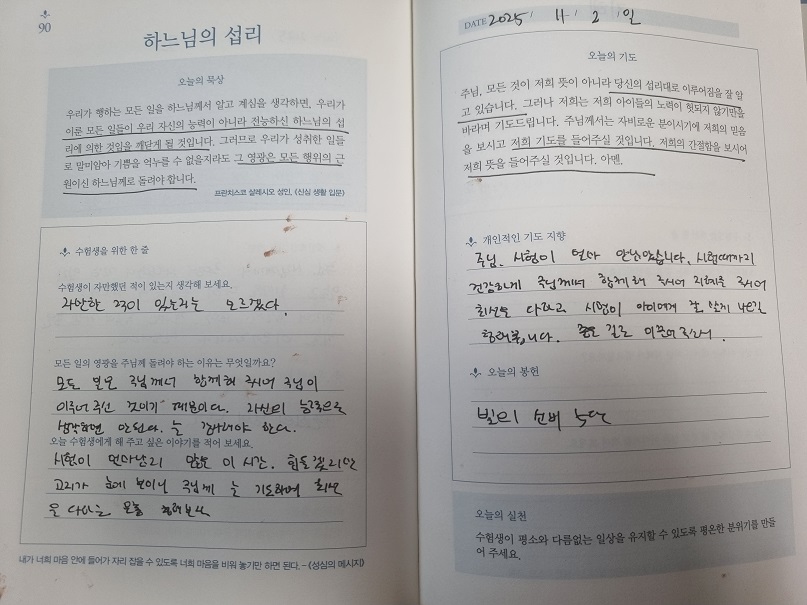 90
하느님의 섭리
오늘의 묵상
우리가 행하는 모든 일을 하느님께서 알고 계심을 생각하면, 우리가
이룬 모든 일들이 우리 자신의 능력이 아니라 전능하신 하느님의 섭
리에 의한 것임을 깨닫게 될 것입니다. 그러므로 우리가 성취한 일들
로 말미암아 기쁨을 억누를 수 없을지라도 그 영광은 모든 행위의 근
원이신 하느님께로 돌려야 합니다.
프란치스코 살레시오 성인, 《신심 생활 입문》
수험생을 위한 한 줄
수험생이 자만했던 적이 있는지 생각해 보세요.
자만한 적이 있는지는 모르겠다.
모든 일의 영광을 주님께 돌려야 하는 이유는 무엇일까요?
모든 일은 주님께서 함께해 주시어 주님이
이루어 주신 것이기 때문이다. 자신의 능력으로
생각하면 안된다. 늘 감사해야 한다.
오늘 수험생에게 해 주고 싶은 이야기를 적어 보세요.
시험이 얼마남지 않은 이 시간. 힘들겠지만
고지가 눈에 보이니 주님께 늘 기도하며 최선
을 다하는 오늘
내가 너희 마음 안에 들어가 자리 잡을 수 있도록 너희 마음을 비워 놓기만 하면 된다. - 《성심의 메시지》
DATE 2025 / 11 / 2 일
오늘의 기도
주님, 모든 것이 저희 뜻이 아니라 당신의 섭리대로 이루어짐을 잘 알
고 있습니다. 그러나 저희는 저희 아이들의 노력이 헛되지 않기만을
바라며 기도드립니다. 주님께서는 자비로운 분이시기에 저희의 믿음
을 보시고 저희 기도를 들어주실 것입니다. 저희의 간절함을 보시어
저희 뜻을 들어주실 것입니다. 아멘.
개인적인 기도 지향
주님. 시험이 얼마 안남았습니다. 시험때까지
건강하게 주님께서 함께해 주시어 지혜를 주시어
최선을 다하고 시험이 아이에게 잘 맞게 나오길
청해봅니다. 좋은 길로 이끌어주소서.
오늘의 봉헌
빛의 신비 5단
오늘의 실천
수험생이 평소와 다름없는 일상을 유지할 수 있도록 평온한 분위기를 만들
어 주세요.